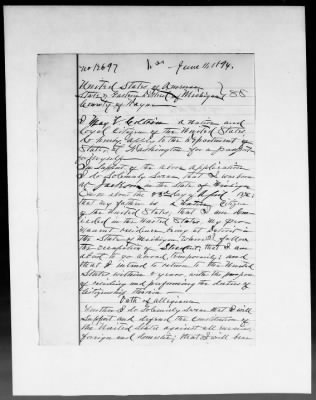 No 13697 June 11, 1894.
United States of America
State & Eastern District of Michigan } SS
County of Wayne
I May V. a native and
Loyal Citizen of the United States,
do hereby apply to the Department of
State, at Washington for a passport
for myself.
In support of the above application
I do Solemnly Swear that I was born
at Jackson in the State of Michigan
on or about the day of April
that my father is a Citizen
of the United States, that I am dom-
iciled in the United States, my per-
manent residence being at Detroit in
the State of Michigan where I follow
the occupation of ; that I am
about to go abroad temporarily; and
that I intend to return to the United
States within 2 years, with the purpose
of residing and performing the duties of
Citizenship therein —
Oath of Allegiance
Further I do Solemnly Swear that I will
Support and defend the Constitution of
the United States against all enemies,
foreign and domestic; that I will bear